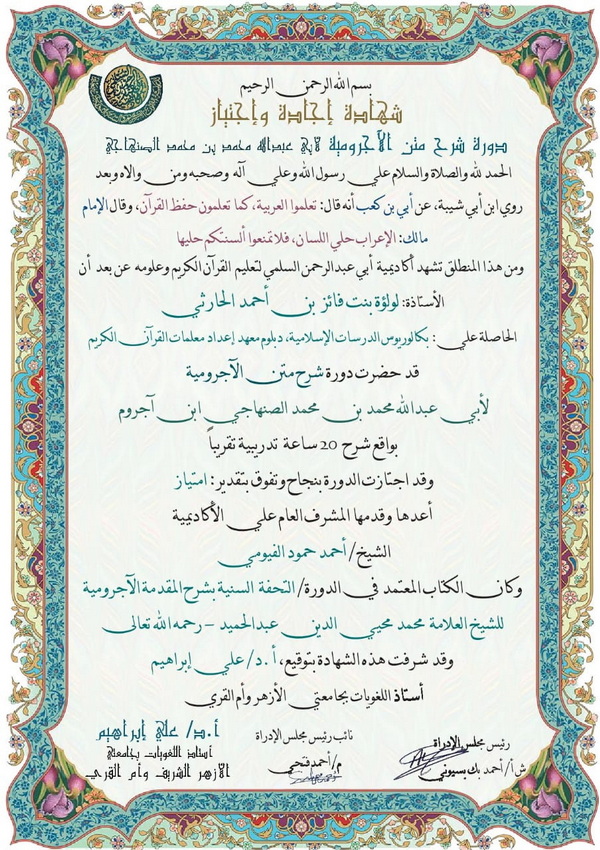 بسم الله الرحمن الرحيم
شهادة إجادة وإجتياز
دورة شرح متن الأجرومية لابي عبدالله محمد بن محمد الصنهاجي
الحمد لله والصلاة والسلام علي رسول الله وعلي آله وصحبه ومن والاه وبعد
روي ابن أبي شيبة، عن أبي بن كعب أنه قال: تعلموا العربية، كما تعلمون حفظ القرآن، وقال الإمام
مالك: الإعراب حلي اللسان، فلا تمنعوا ألسنتكم حليها
ومن هذا المنطلق تشهد أكاديمية أبي عبد الرحمن السلمي لتعليم القرآن الكريم وعلومه عن بعد أن
الأستاذة: لولؤة بنت فائز بن أحمد الحارثي
الحاصلة علي: بكالوريوس الدرسات الإسلامية، دبلوم معهد إعداد معلمات القرآن الكريم
قد حضرت دورة شرح متن الآجرومية
لأبي عبد الله محمد بن محمد الصنهاجي ابن آجروم
بواقع شرح 20 ساعة تدريبية تقريباً
وقد اجتازت الدورة بنجاح وتفوق بتقدير: امتياز
أعدها وقدمها المشرف العام علي الأكاديمية
الشيخ/ أحمد حمود الفيومي
وكان الكتاب المعتمد في الدورة/ التحفة السنية بشرح المقدمة الآجرومية
للشيخ العلامة محمد محيي الدين عبد الحميد – رحمه الله تعالى
وقد شرفت هذه الشهادة بتوقيع، أ.د/ علي إبراهيم
أستاذ اللغويات بجامعتي الأزهر وأم القري
رئيس مجلس الإدراة
ش أ/ أحمد بك بسيوني
نائب رئيس مجلس الإدراة
م/ أحمد فتحي
أ.د/ علي إبراهيم
أستاذ اللغويات بجامعتي
الأزهر الشريف وأم القرى